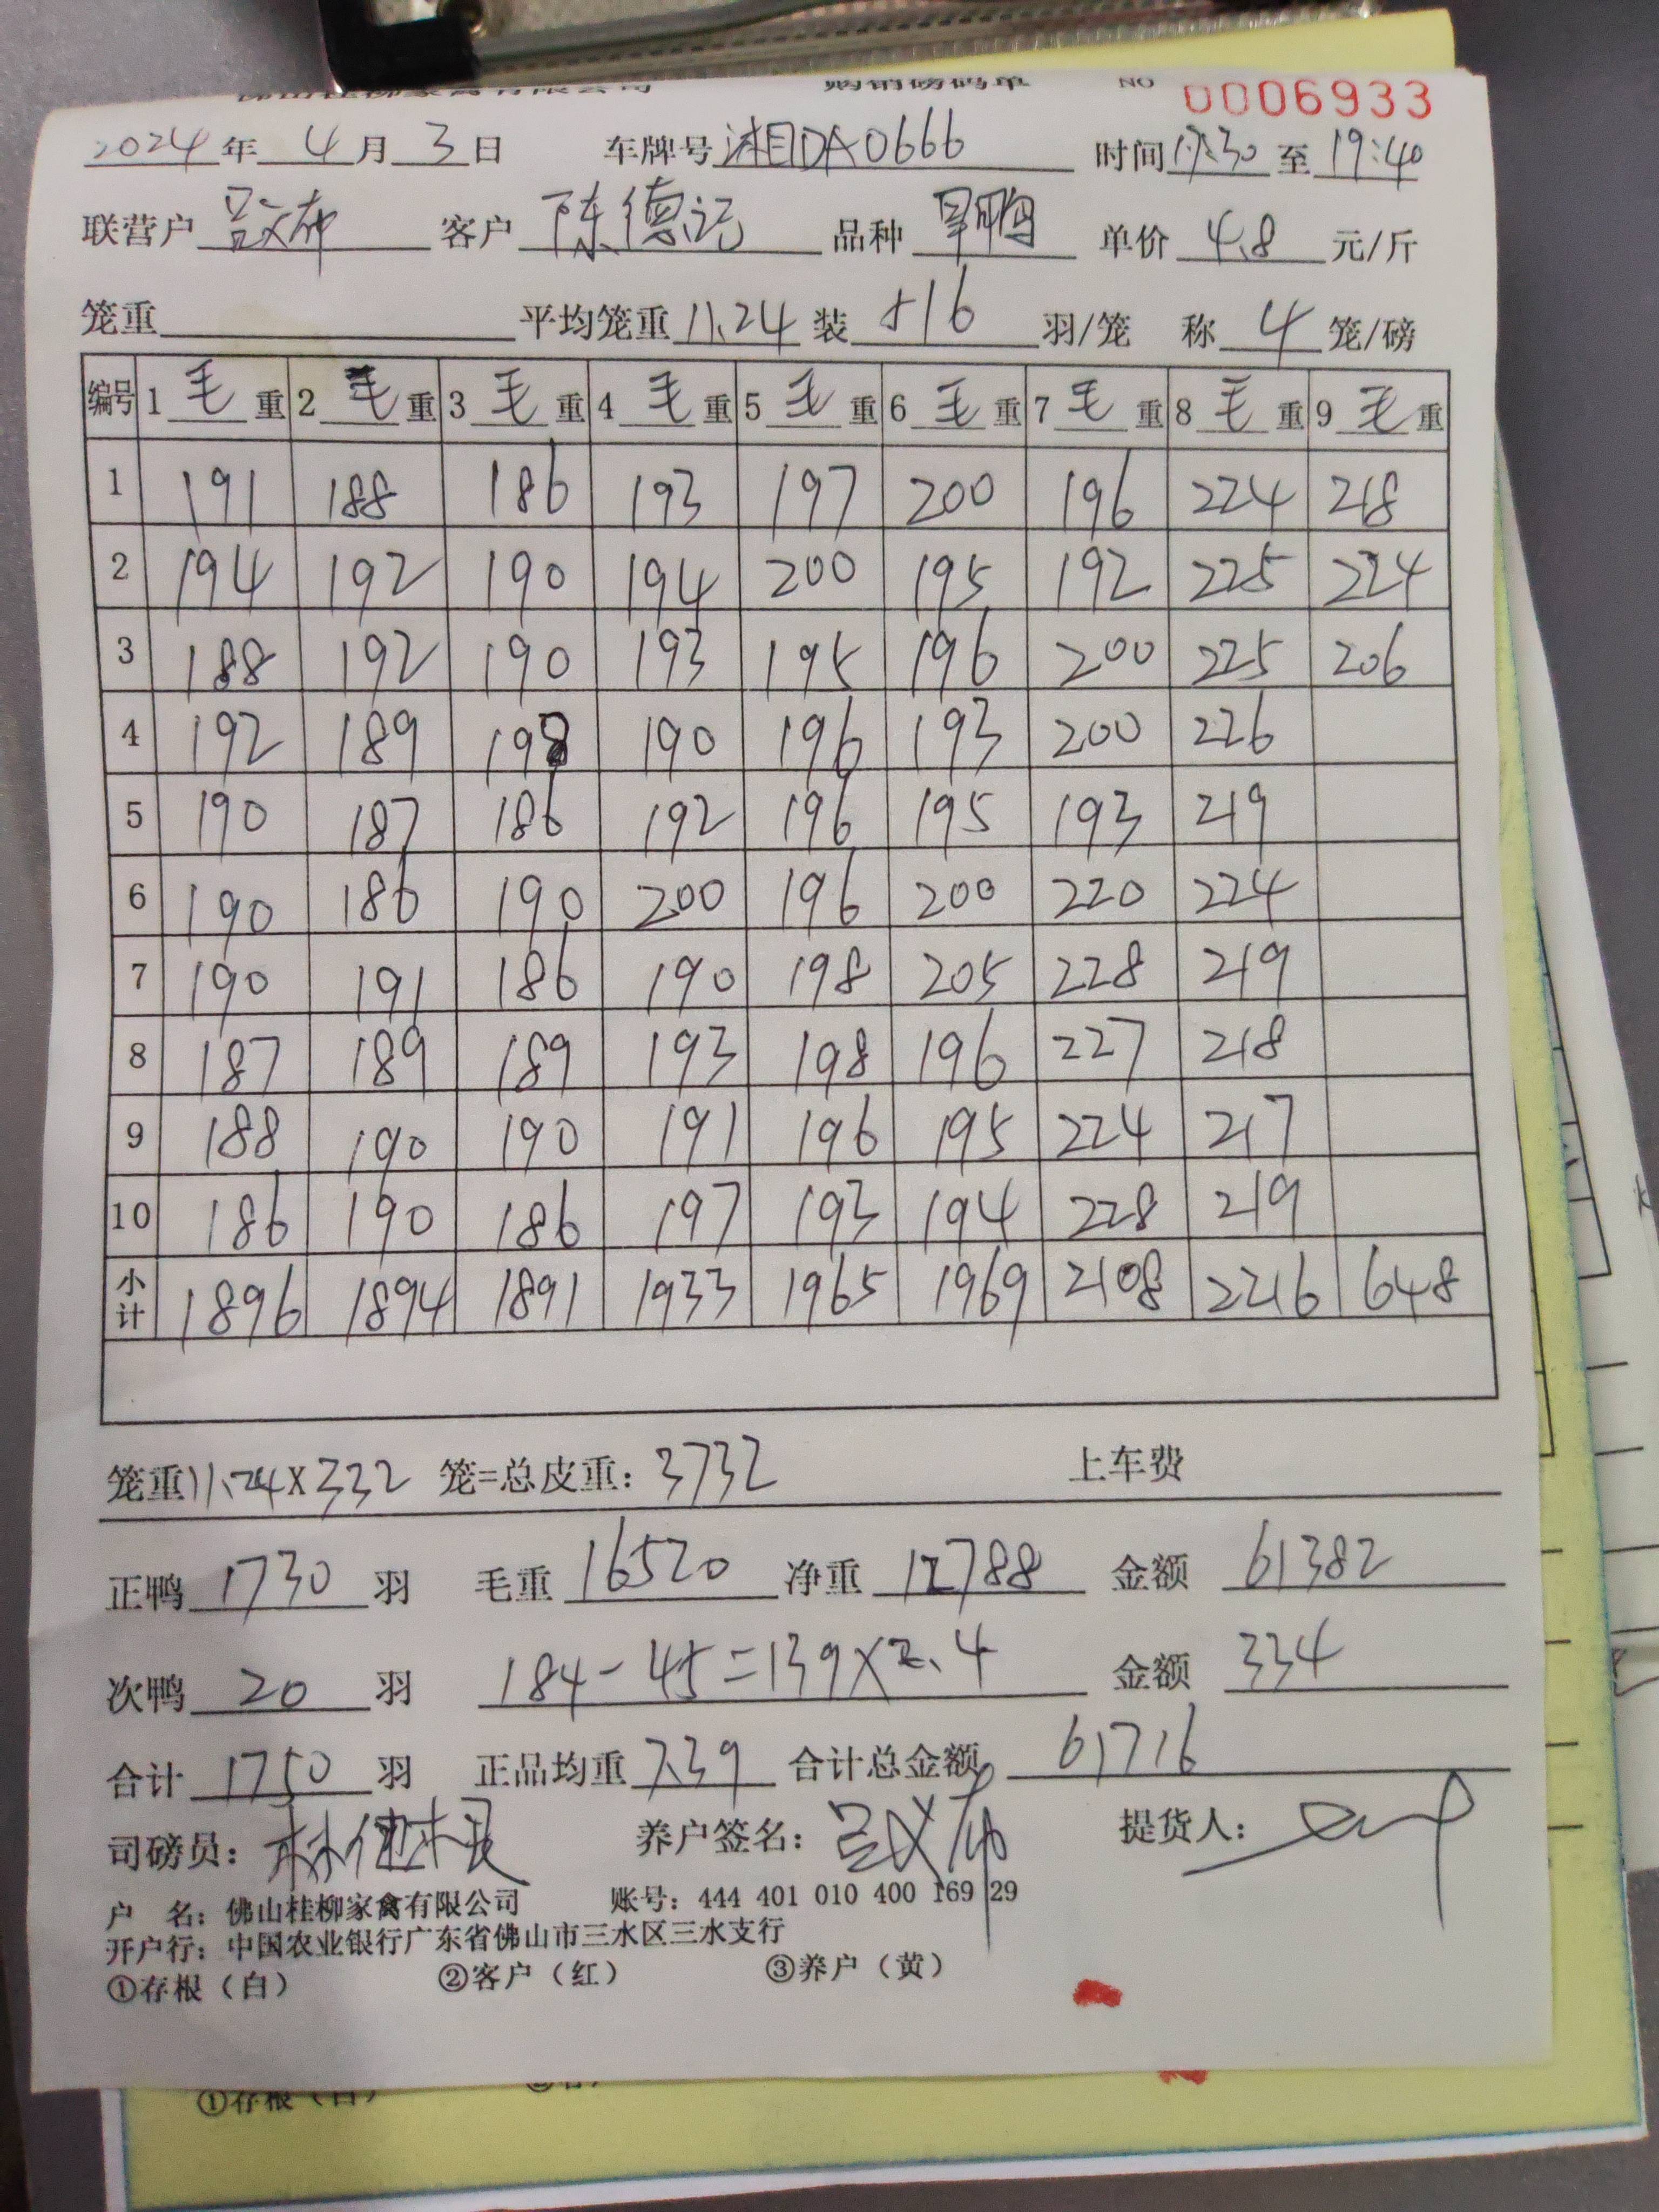 佛山桂柳家禽有限公司 购销磅码单 NO 0006933
2024年 4月 3日 车牌号 湘DA0666 时间 17:30 至 19:40
联营户 客户 陈德记 品种 旱鸭 单价 4.8 元/斤
笼重 平均笼重 11.24 装 羽/笼 称 4 笼/磅
编号 1 毛 重 2 毛 重 3 毛 重 4 毛 重 5 毛 重 6 毛 重 7 毛 重 8 毛 重 9 毛 重
1 191 188 186 193 197 200 196 224 218
2 194 192 190 194 200 195 192 225 224
3 188 192 190 193 195 196 200 225 206
4 192 189 198 190 196 193 200 226
5 190 187 186 192 196 195 193 219
6 190 186 190 200 196 200 220 224
7 190 191 186 190 198 205 228 219
8 187 189 189 193 198 196 227 218
9 188 190 190 191 196 195 224 217
10 186 190 186 197 193 194 228 219
小计 1896 1894 1891 1933 1965 1969 2108 2216 648
笼重 11.24×332 笼=总皮重: 3732 上车费
正鸭 1730 羽 毛重 16520 净重 12788 金额 61382
次鸭 20 羽 184-45=139×2.4 金额 334
合计 1750 羽 正品均重 7.39 合计总金额 61716
司磅员: 养户签名: 提货人:
户 名: 佛山桂柳家禽有限公司 账号: 444 401 010 400 169 29
开户行: 中国农业银行广东省佛山市三水区三水支行
①存根（白） ②客户（红） ③养户（黄）
①存根（白）